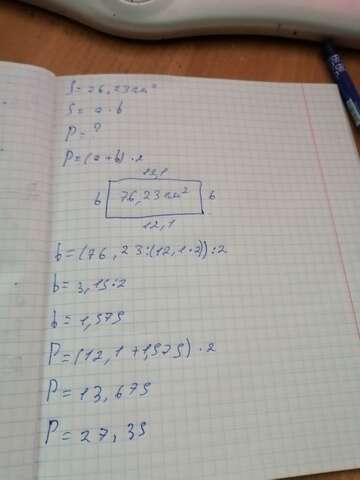 S = 76,23 см²
S = a · b
P = ?
P = (a + b) · 2
12,1
b 76,23 см² b
12,1
b = (76,23 : (12,1 · 2)) : 2
b = 3,15 : 2
b = 1,575
P = (12,1 + 1,575) · 2
P = 13,675
P = 27,35